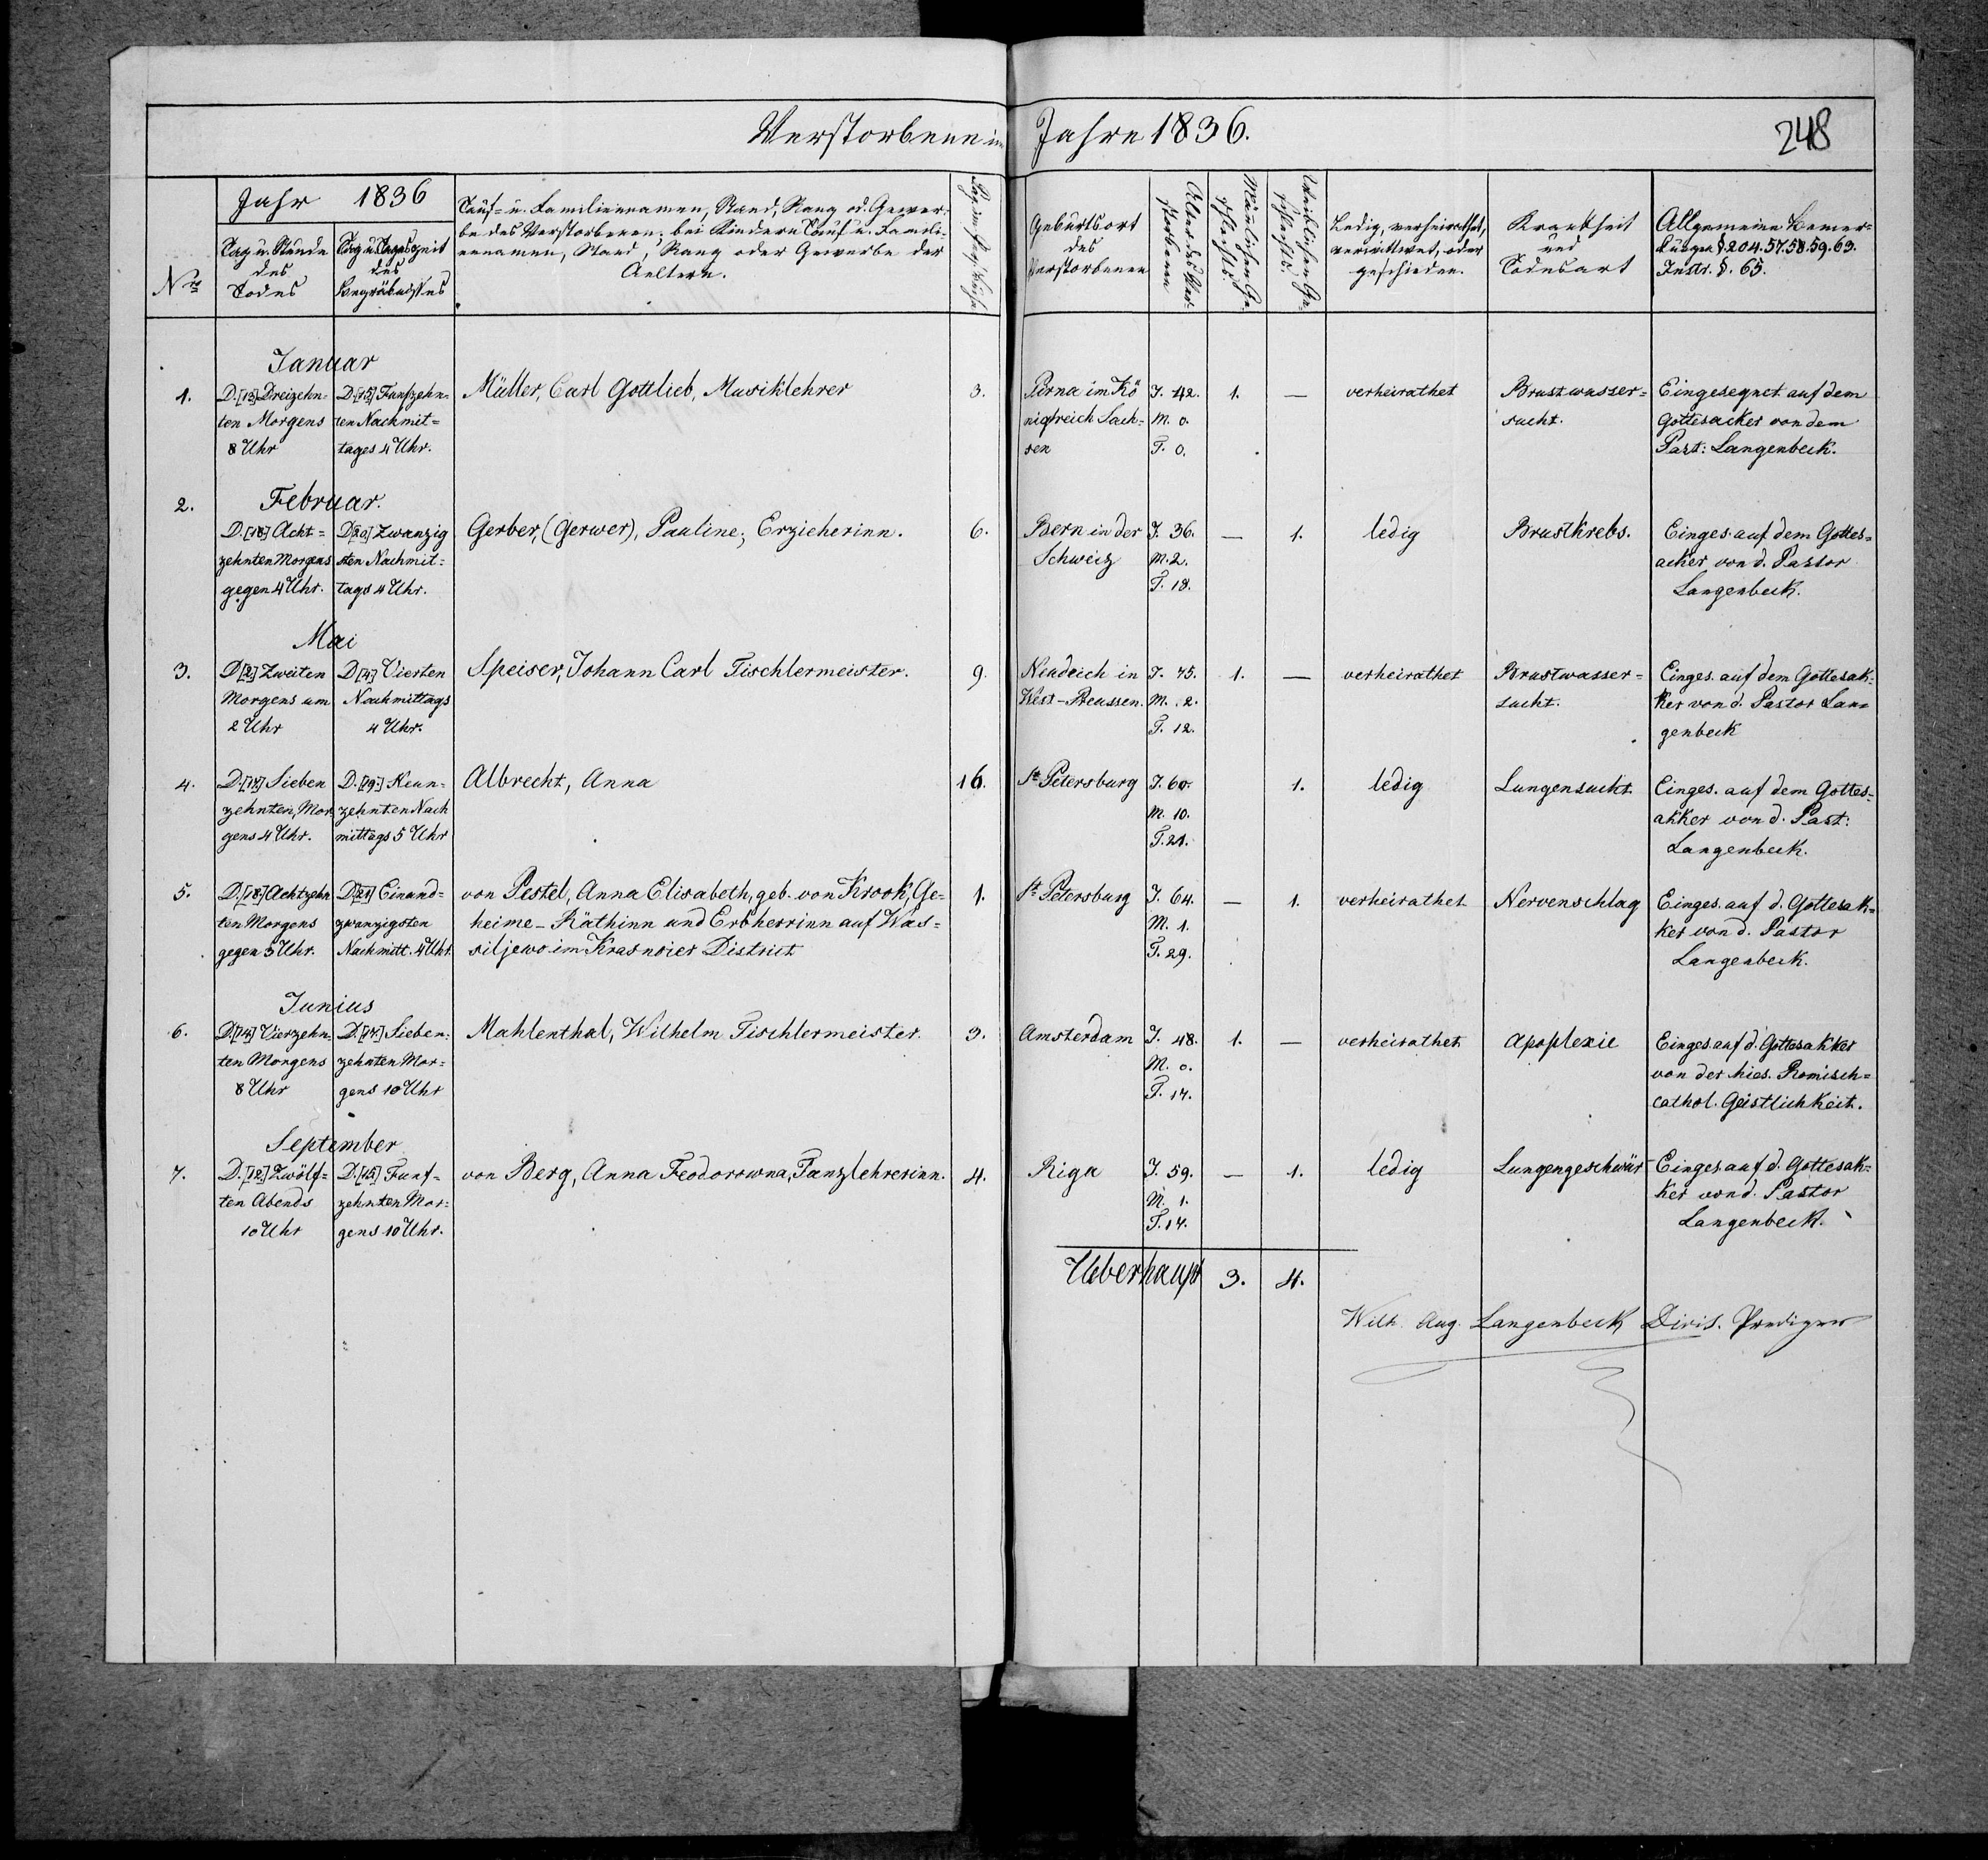 Verstorbene im Jahre 1836.
248
Nro
Jahr 1836
Tag u. Stunde
des
Todes
Tag u. Tageszeit
des
Begräbnisses
Tauf- u. Familiennamen, Stand, Rang od. Gewer-
be des Verstorbenen; bei Kindern Tauf u. Famili-
ennamen, Stand, Rang oder Gewerbe der
Aeltern.
Geburtsort
des
Verstorbenen
Alter des Ver-
storbenen
Männlichen Ge-
schlechts.
Weiblichen Ge-
schlechts.
Ledig, verheirathet,
verwittwet, oder
geschieden.
Krankheit
und
Todesart
Allgemeine Bemer-
kungen §204.57.58.59.63.
Instr. §. 65.
Januar
1.
D. [13] Dreizehn-
ten Morgens
8 Uhr
D. [15] Funfzehn-
ten Nachmit-
tages 4 Uhr.
Müller, Carl Gottlieb, Musiklehrer
3.
Pirna im Kö
nigreich Sach-
sen
J. 42.
M. 0.
T. 0.
1.
—
verheirathet
Brustwasser-
sucht.
Eingesegnet auf dem
Gottesacker von dem
Past: Langenbeck.
2.
Februar.
D. [18] Acht-
zehnten Morgens
gegen 4 Uhr.
D [20] Zwanzig
sten Nachmit-
tags 4 Uhr.
Gerber, (Gerwer), Pauline; Erzieherinn.
6.
Bern in der
Schweiz
J. 36.
M. 2.
T. 18.
—
1.
ledig
Brustkrebs.
Einges. auf dem Gottes-
acker von d. Pastor
Langenbeck.
Mai
3.
D [2] Zweiten
Morgens um
2 Uhr
D [4] Vierten
Nachmittags
4 Uhr.
Speiser, Johann Carl Tischlermeister.
9.
Neudeich in
West-Preussen.
J. 45.
M. 2.
T. 12.
1.
—
verheirathet
Brustwasser-
sucht.
Einges. auf dem Gottesak-
ker von d. Pastor Lan-
genbeck
4.
D. [17] Sieben
zehnten, Mor-
gens 4 Uhr.
D. [19.] Neun-
zehnten Nach
mittags 5 Uhr
Albrecht, Anna
16.
St. Petersburg
J. 60.
M. 10.
T. 21.
1.
ledig
Lungensucht
Einges. auf dem Gottes-
akker von d. Past:
Langenbeck.
5.
D. [18.] Achtzehn
ten Morgens
gegen 3 Uhr.
D. [21] Einund-
zwanzigsten
Nachmitt. 4 Uhr.
von Pestel, Anna Elisabeth, geb. von Krook, Ge-
heime-Räthinn und Erbherrinn auf Was-
siljewo im Krasnoier District
1.
St. Petersburg
J. 64.
M. 1.
T. 29.
—
1.
verheirathet
Nervenschlag
Einges. auf d. Gottesak-
ker von d. Pastor
Langenbeck.
Junius
6.
D. [14] Vierzehn-
ten Morgens
8 Uhr
D. [17] Sieben-
zehnten Mor-
gens 10 Uhr
Mahlenthal, Wilhelm Tischlermeister.
3.
Amsterdam
J. 48.
M. 0.
T. 17.
1.
—
verheirathet
Apoplexie
Einges. auf d. Gottesakker
von der hies. Romisch-
cathol. Geistlichkeit.
September
7.
D. [12.] Zwölf-
ten Abends
10 Uhr
D. [15] Funf-
zehnten Mor-
gens 10 Uhr.
von Berg, Anna Feodorowna, Tanzlehrerinn.
4.
Riga
J. 59.
M. 1.
T. 17.
—
1.
ledig
Lungengeschwür
Einges. auf d. Gottesak-
ker von d. Pastor
Langenbeck.
Ueberhaupt 3. 4.
Wilh. Aug. Langenbeck Divis. Prediger